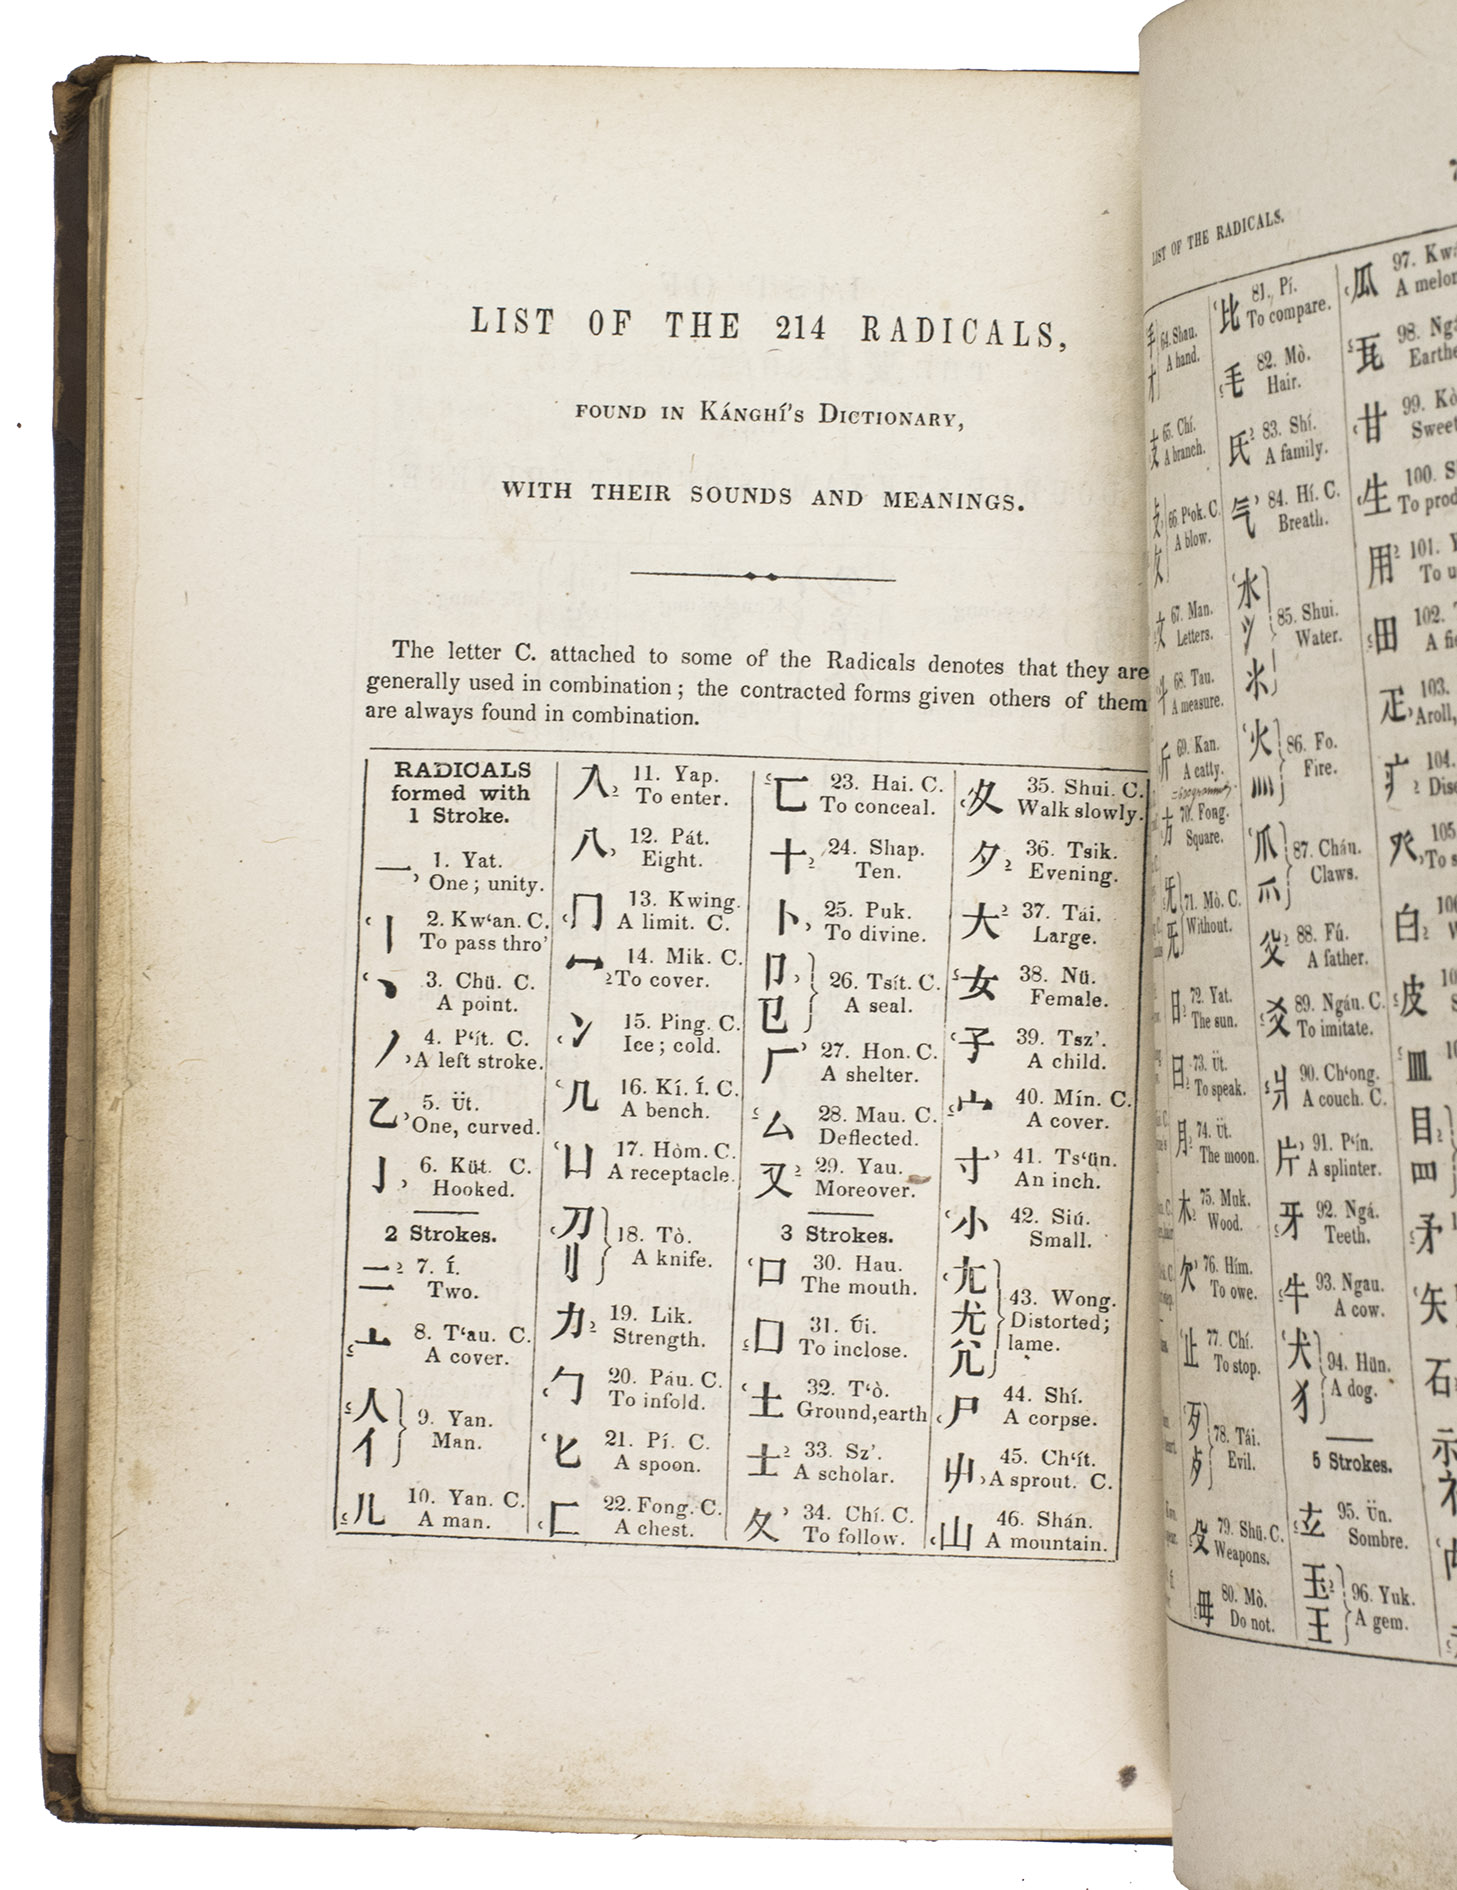 LIST OF THE 214 RADICALS,
FOUND IN KÁNGHÍ'S DICTIONARY,
WITH THEIR SOUNDS AND MEANINGS.
The letter C. attached to some of the Radicals denotes that they are
generally used in combination; the contracted forms given others of them
are always found in combination.
RADICALS
formed with
1 Stroke.
一 1. Yat.
One; unity.
丨 2. Kw‘an. C.
To pass thro’
丶 3. Chü. C.
A point.
丿 4. P‘ít. C.
A left stroke.
乙 5. Üt.
One, curved.
亅 6. Küt. C.
Hooked.
2 Strokes.
二 7. Í.
Two.
亠 8. T‘au. C.
A cover.
人 亻 9. Yan.
Man.
儿 10. Yan. C.
A man.
入 11. Yap.
To enter.
八 12. Pát.
Eight.
冂 13. Kwing.
A limit. C.
冖 14. Mik. C.
To cover.
冫 15. Ping. C.
Ice; cold.
几 16. Kí. Í. C.
A bench.
凵 17. Hòm. C.
A receptacle.
刀 刂 18. Tò.
A knife.
力 19. Lik.
Strength.
勹 20. Páu. C.
To infold.
匕 21. Pí. C.
A spoon.
匚 22. Fong. C.
A chest.
匸 23. Hai. C.
To conceal.
十 24. Shap.
Ten.
卜 25. Puk.
To divine.
卩 㔾 26. Tsít. C.
A seal.
厂 27. Hon. C.
A shelter.
厶 28. Mau. C.
Deflected.
又 29. Yau.
Moreover.
3 Strokes.
口 30. Hau.
The mouth.
囗 31. Úi.
To inclose.
土 32. T‘ò.
Ground, earth
士 33. Sz’.
A scholar.
夂 34. Chí. C.
To follow.
夊 35. Shui. C.
Walk slowly.
夕 36. Tsik.
Evening.
大 37. Tái.
Large.
女 38. Nü.
Female.
子 39. Tsz’.
A child.
宀 40. Mín. C.
A cover.
寸 41. Ts‘ün.
An inch.
小 42. Siú.
Small.
尢 尤 尣 43. Wong.
Distorted;
lame.
尸 44. Shí.
A corpse.
屮 45. Ch‘ít.
A sprout. C.
山 46. Shán.
A mountain.
LIST OF THE RADICALS.
手 扌 64. Shau.
A hand.
支 65. Chí.
A branch.
攴 攵 66. P‘ok. C.
A blow.
文 67. Man.
Letters.
斗 68. Tau.
A measure.
斤 69. Kan.
A catty.
方 70. Fong.
Square.
无 旡 71. Mò. C.
Without.
日 72. Yat.
The sun.
曰 73. Üt.
To speak.
月 74. Üt.
The moon.
木 75. Muk.
Wood.
欠 76. Hím.
To owe.
止 77. Chí.
To stop.
歹 歺 78. Tái.
Evil.
殳 79. Shü. C.
Weapons.
毋 80. Mò.
Do not.
比 81. Pí.
To compare.
毛 82. Mò.
Hair.
氏 83. Shí.
A family.
气 84. Hí. C.
Breath.
水 氵 氺 85. Shui.
Water.
火 灬 86. Fo.
Fire.
爪 爫 87. Cháu.
Claws.
父 88. Fú.
A father.
爻 89. Ngáu. C.
To imitate.
爿 90. Ch‘ong.
A couch. C.
片 91. P‘ín.
A splinter.
牙 92. Ngá.
Teeth.
牛 93. Ngau.
A cow.
犬 犭 94. Hün.
A dog.
5 Strokes.
玄 95. Ün.
Sombre.
玉 王 96. Yuk.
A gem.
瓜 97.
A
瓦 98.
甘 99.
生 100.
To
用 101.
To
田 102.
A
疋 103.
疒 104.
癶 105.
To
白
皮
皿
目 罒
矛
矢
石
示